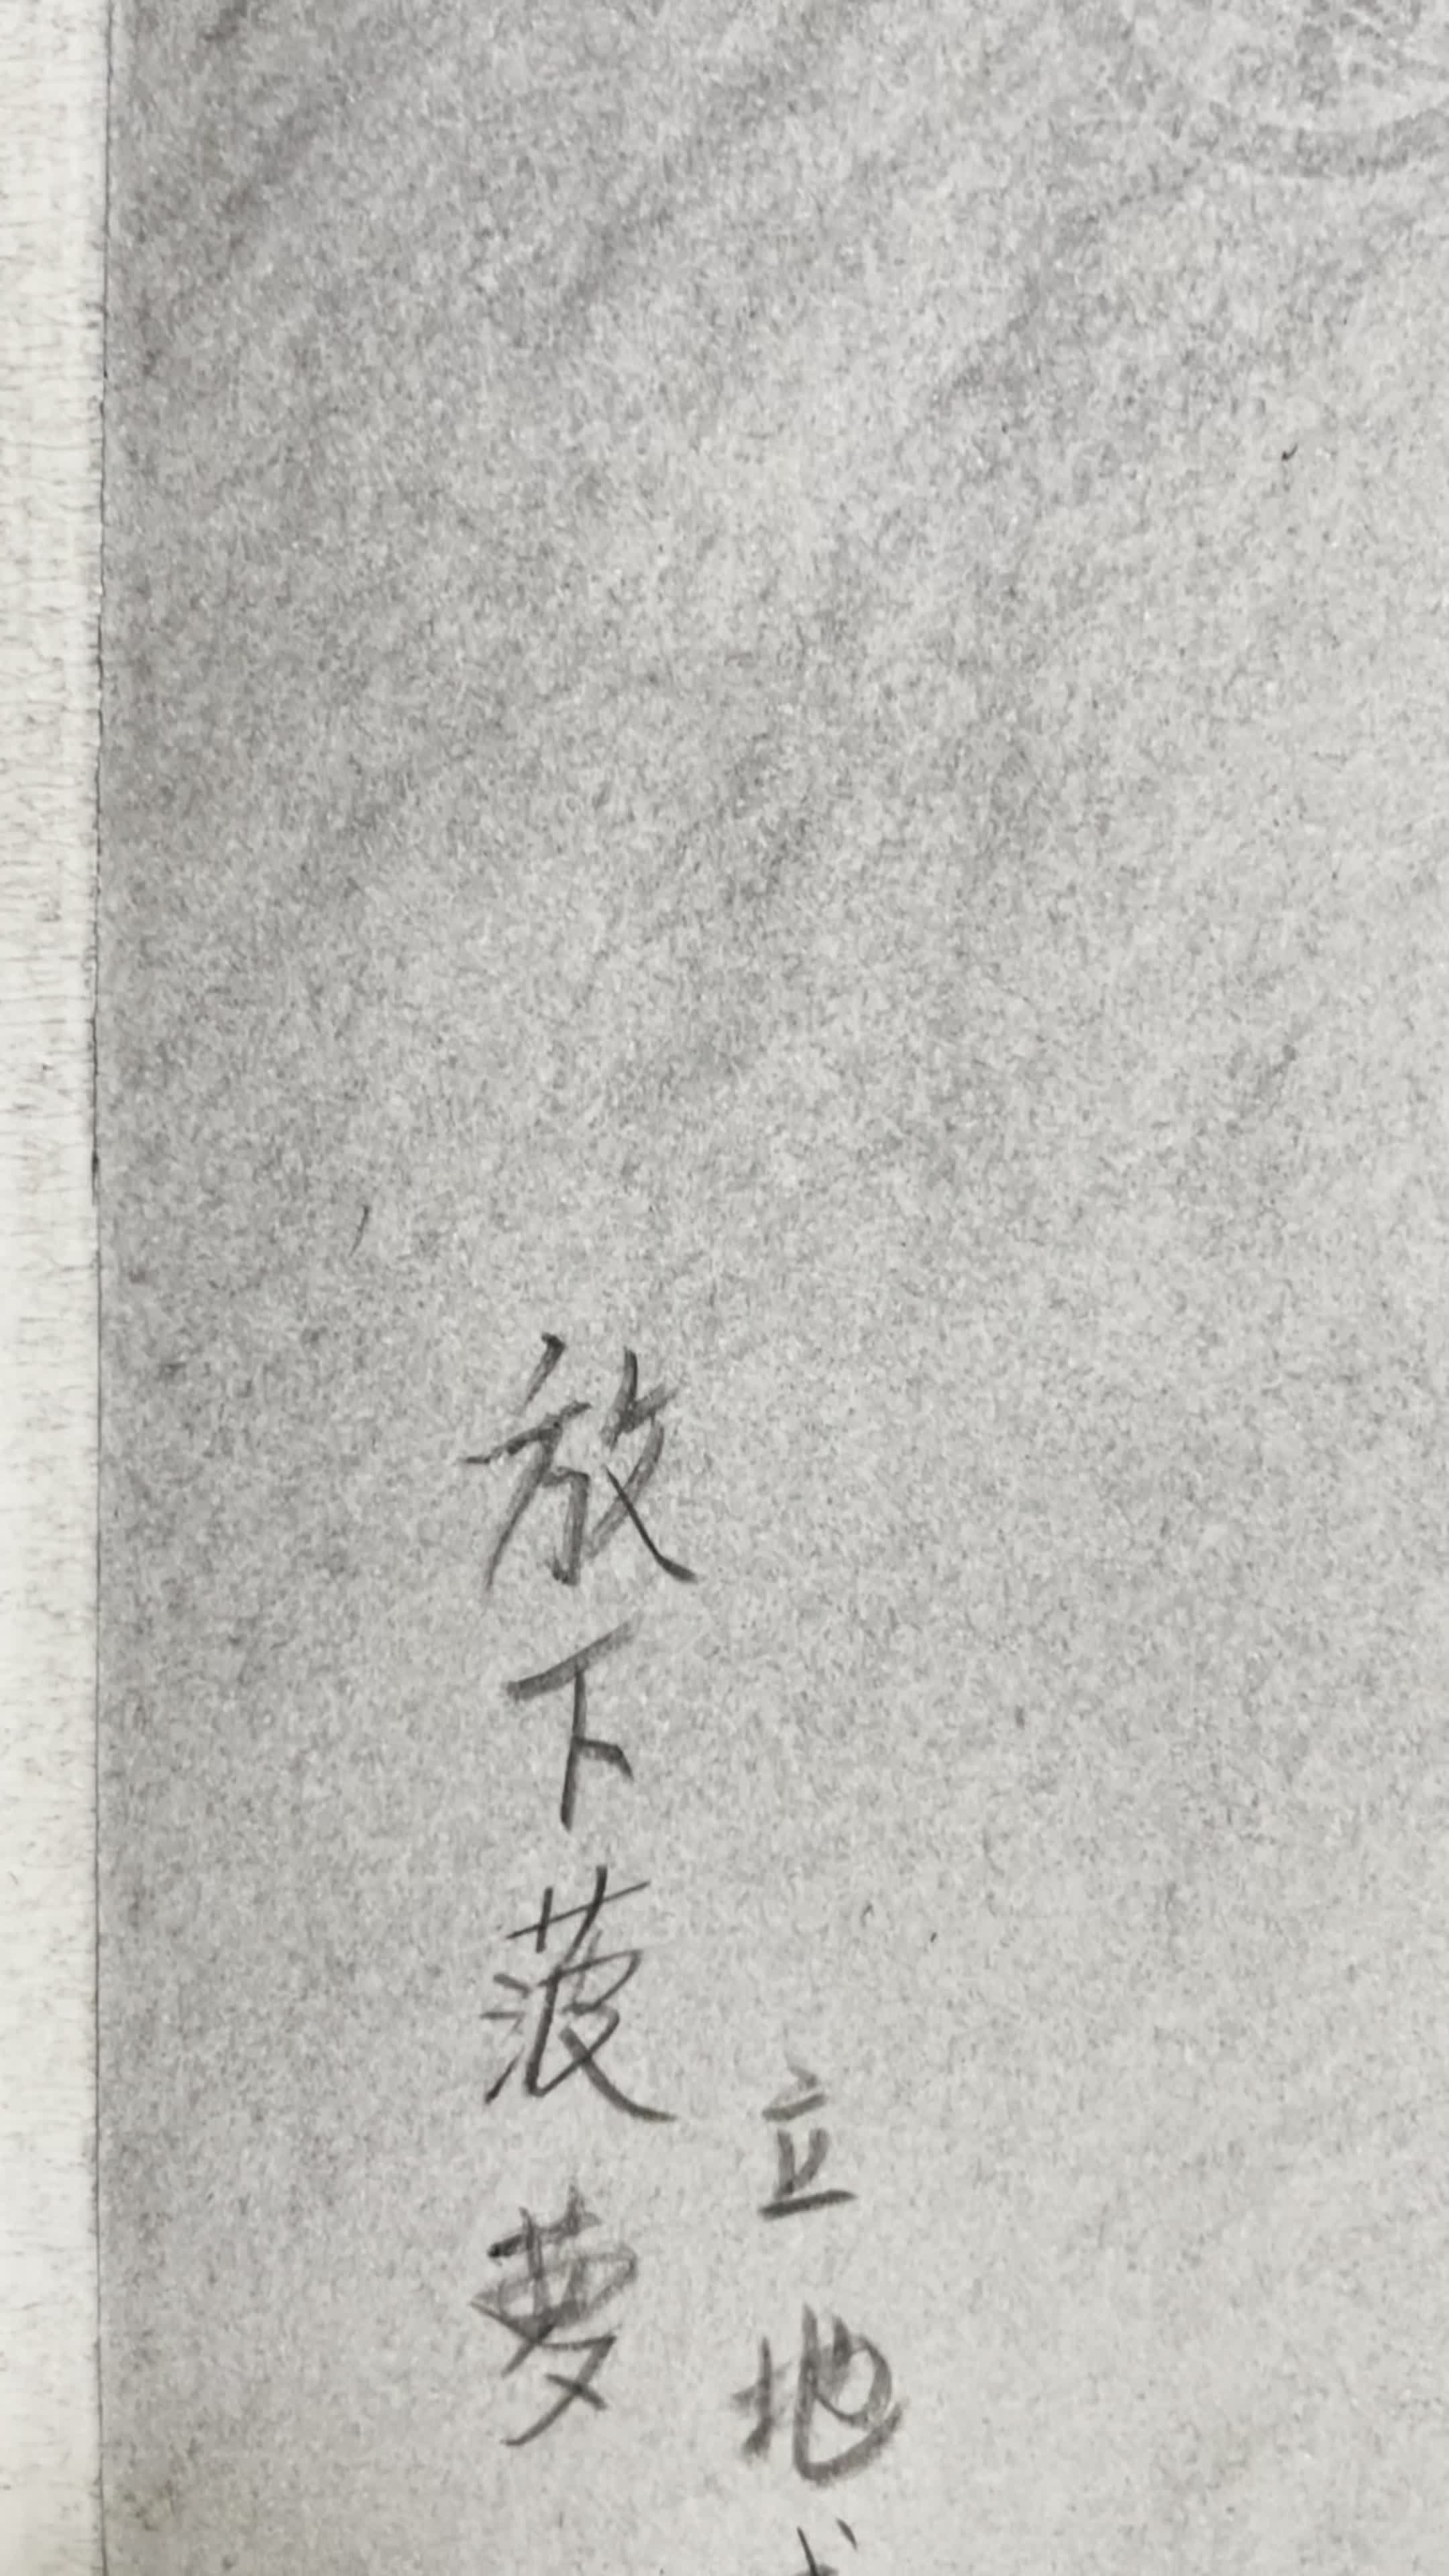 放下菠萝
立地